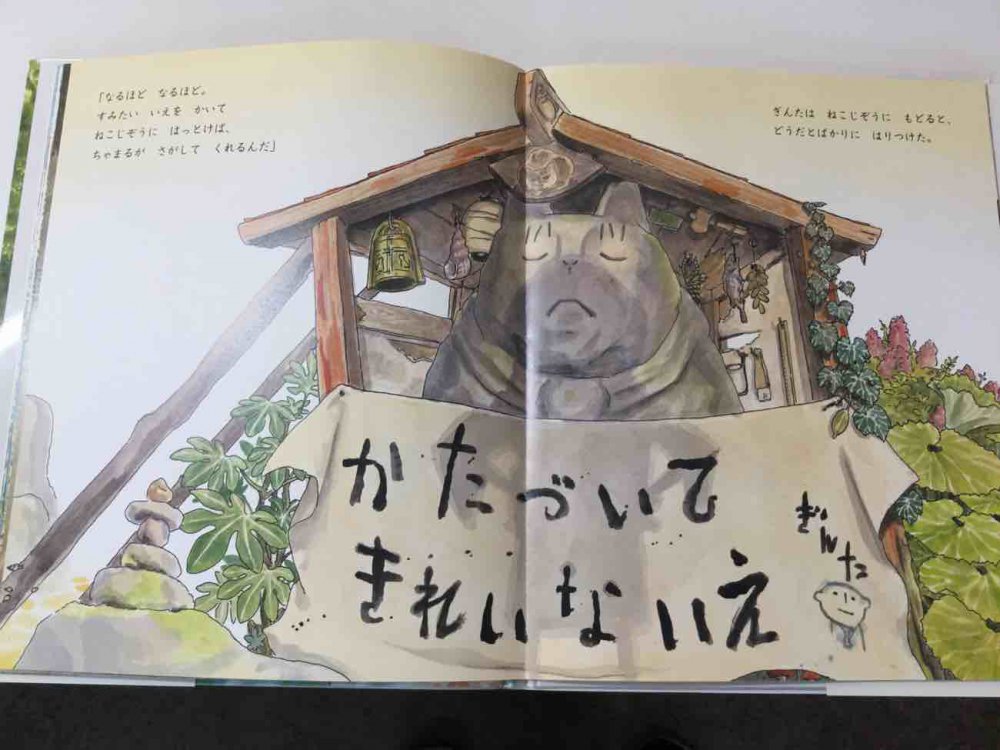 「なるほど　なるほど。
すみたい　いえを　かいて
ねこじぞうに　はっとけば、
ちゃまるが　さがして　くれるんだ」
ぎんたは　ねこじぞうに　もどると、
どうだとばかりに　はりつけた。
かたづいて
きれいないえ
ぎんた